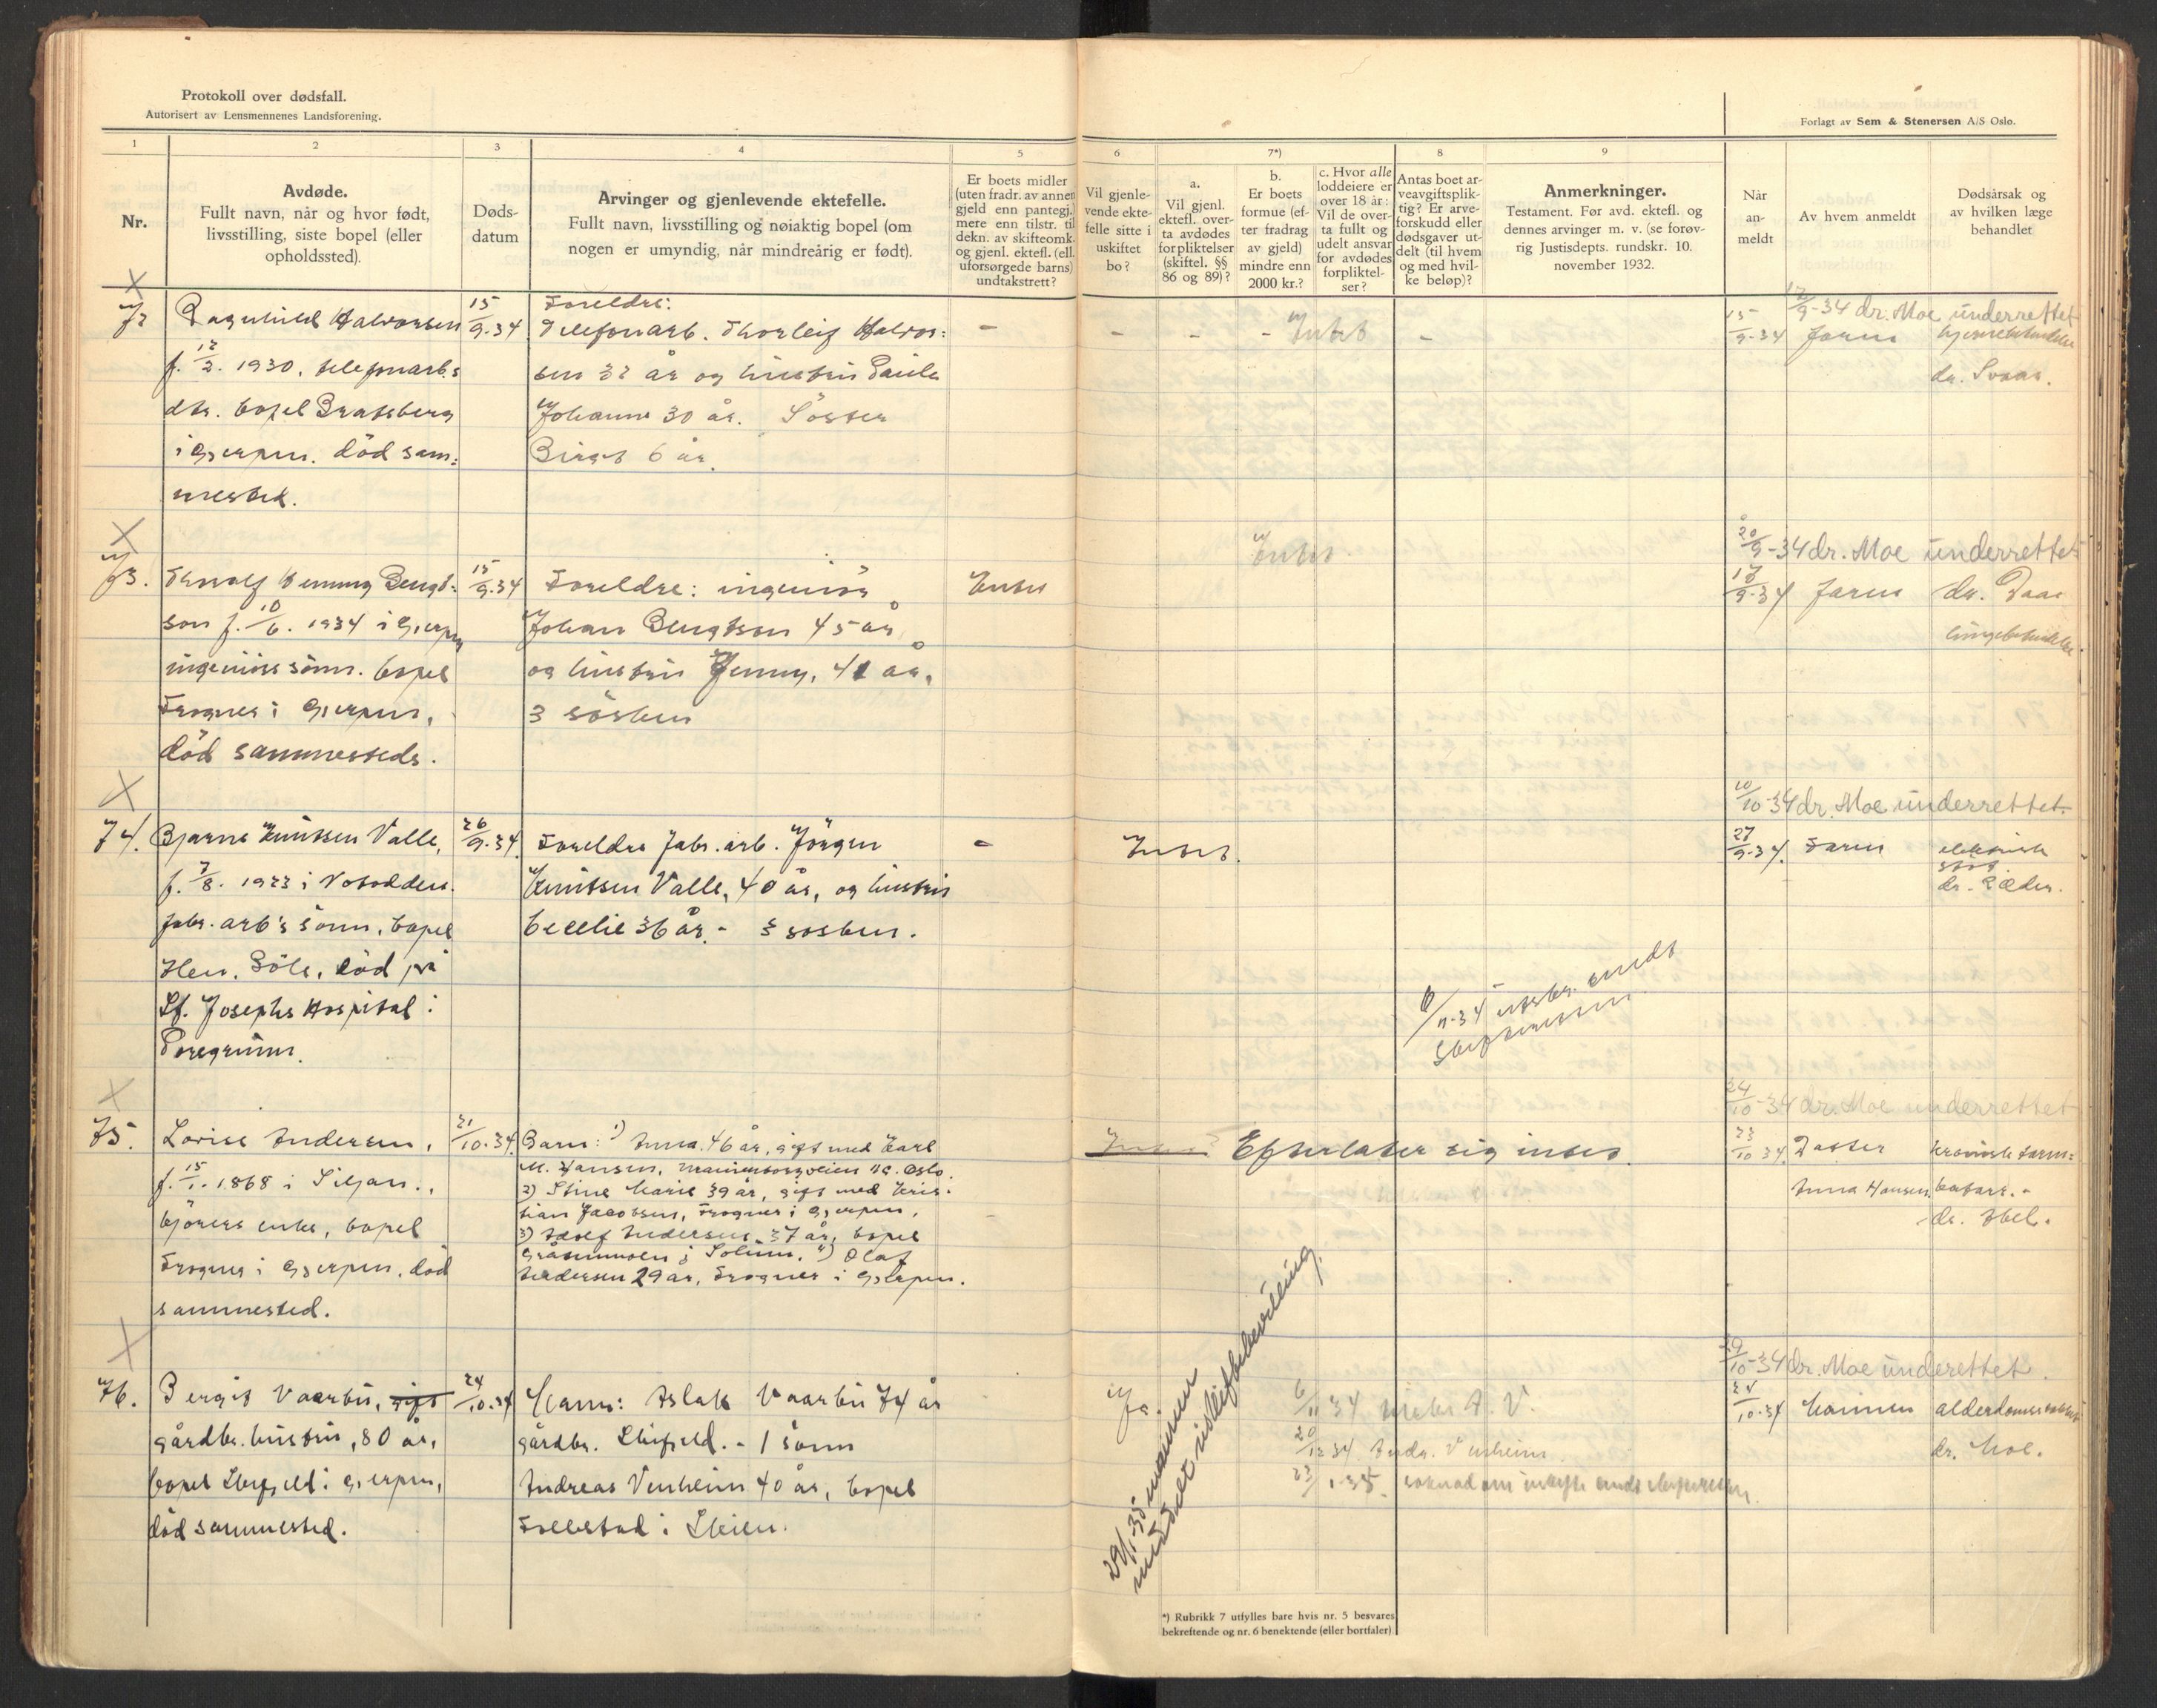 Protokoll over dødsfall.
Autorisert av Lensmennenes Landsforening.
Forlagt av Sem & Stenersen A/S Oslo.
1
2
3
4
5
6
7*)
8
9
Nr.
Avdøde.
Fullt navn, når og hvor født,
livsstilling, siste bopel (eller
opholdssted).
Døds-
datum
Arvinger og gjenlevende ektefelle.
Fullt navn, livsstilling og nøiaktig bopel (om
nogen er umyndig, når mindreårig er født).
Er boets midler
(uten fradr. av annen
gjeld enn pantegj.)
mere enn tilstr. til
dekn. av skifteomk.
og gjenl. ektefl. (ell.
uforsørgede barns)
undtakstrett?
Vil gjenle-
vende ekte-
felle sitte i
uskiftet
bo?
a.
Vil gjenl.
ektefl. over-
ta avdødes
forpliktelser
(skiftel. §§
86 og 89)?
b.
Er boets
formue (ef-
ter fradrag
av gjeld)
mindre enn
2000 kr.?
c. Hvor alle
loddeiere er
over 18 år:
Vil de over-
ta fullt og
udelt ansvar
for avdødes
forpliktel-
ser?
Antas boet ar-
veavgiftsplik-
tig? Er arve-
forskudd eller
dødsgaver ut-
delt (til hvem
og med hvil-
ke beløp)?
Anmerkninger.
Testament. Før avd. ektefl. og
dennes arvinger m. v. (se forøv-
rig Justisdepts. rundskr. 10.
november 1932.
Når
an-
meldt
Av hvem anmeldt
Dødsårsak og
av hvilken læge
behandlet
72
Dagnhild Halvorsen
f. 12/2. 1930, telefonarb.s
dtr. bopel Bratsberg
i Gjerpen. död sam:
mested.
15/9-34
Foreldre:
Telefonarb. Thorleif Halvor:
sen 32 år og hustru Paula
Johanne 30 år. Söster
Birgit 6 år.
-
-
-
- Intet
-
17/9-34 dr. Moe underrettet
15/9-34
Faren
dr. Svaar.
73.
Thoralf Henning Bengt:
son f. 10/6. 1934 i Gjerpen
ingeniörs sönn. bopel
Frogner i Gjerpen,
död sammesteds.
15/9-34
Foreldre: ingeniör
Johan Bengtson 45 år
og hustru Jenny, 41 år.
3 sösken
Intet
Intet
20/9-34 dr. Moe underrettet
17/9-34
Faren
dr. Daae
lungebetendelse
74.
Bjarne Knutsen Valle,
f. 7/8. 1923 i Notodden.
fabr. arb's sönn, bopel
Hen, Böle, död på
St. Josephs Hospital i
Porsgrunn.
26/9-34.
Foreldre fabr. arb. Jörgen
Knutsen Valle, 40 år, og hustru
Cecelie 36 år. - 3 sosken.
-
Intet.
10/10-34 dr. Moe underrettet.
27/9-34.
Faren
elektrisk
stöt
6/11-34 utskr. sendt
Skifteretten.
75.
Lovise Andersen,
f. 15/1. 1868 i Siljan.,
kjörers enke, bopel
Frogner i Gjerpen, död
sammested.
21/10-34.
Barn: 1) Anna. 46 år, gift med Karl
M. Hansen, 11c. Oslo.
2) Stine Marie 39 år, gift med Kris:
tian Jacobsen, Frogner i Gjerpen,
3) Adolf Andersen 37 år, bopel
i Solum. 4) Olaf
Andersen 29 år, Frogner i Gjerpen.
Intet
Efterlater sig intet.
24/10-34 dr. Moe underrettet
23/10 34.
Datter
Anna Hansen
kronisk tarm:
katarr. -
dr. Abel.
76.
Bergit Vaarbu, gift
gårdbr. hustru, 80 år,
bopel Luksefjell i Gjerpen,
död sammested.
24/10-34
Mann: Aslak Vaarbu 74 år
gårdbr. Luksefjell. - 1 sönn
Andreas Venheim 40 år, bopel
Follestad i Skien.
Ja.
6/11 34 A. V.
20/12 34 Andr. Venheim
23/1-35. soknad om uskifte sendt skifteretten
29/1-35 mannen
meddelt uskiftebevilling.
29/10-34 dr. Moe underettet.
25/10-34
Mannen
alderdomssvakhet
dr. Moe.
*) Rubrikk 7 utfylles bare hvis nr. 5 besvares
bekreftende og nr. 6 benektende (eller bortfaler)